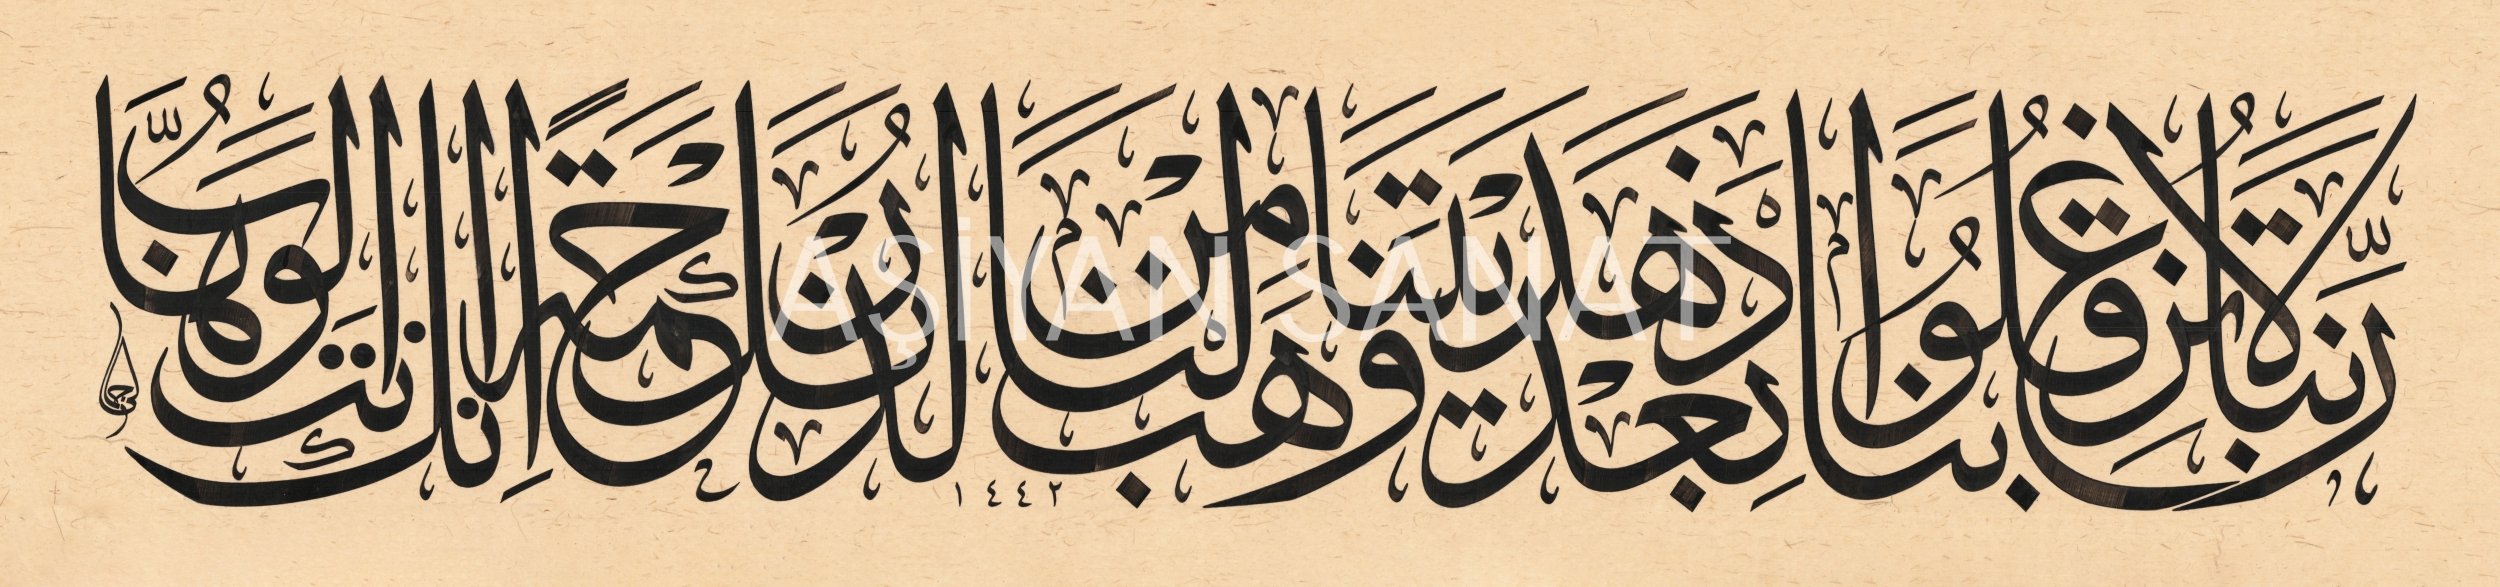 ربنا لا تزغ قلوبنا بعد إذ هديتنا وهب لنا من لدنك رحمة إنك أنت الوهاب
١٤٤٢
AŞİYAN SANAT